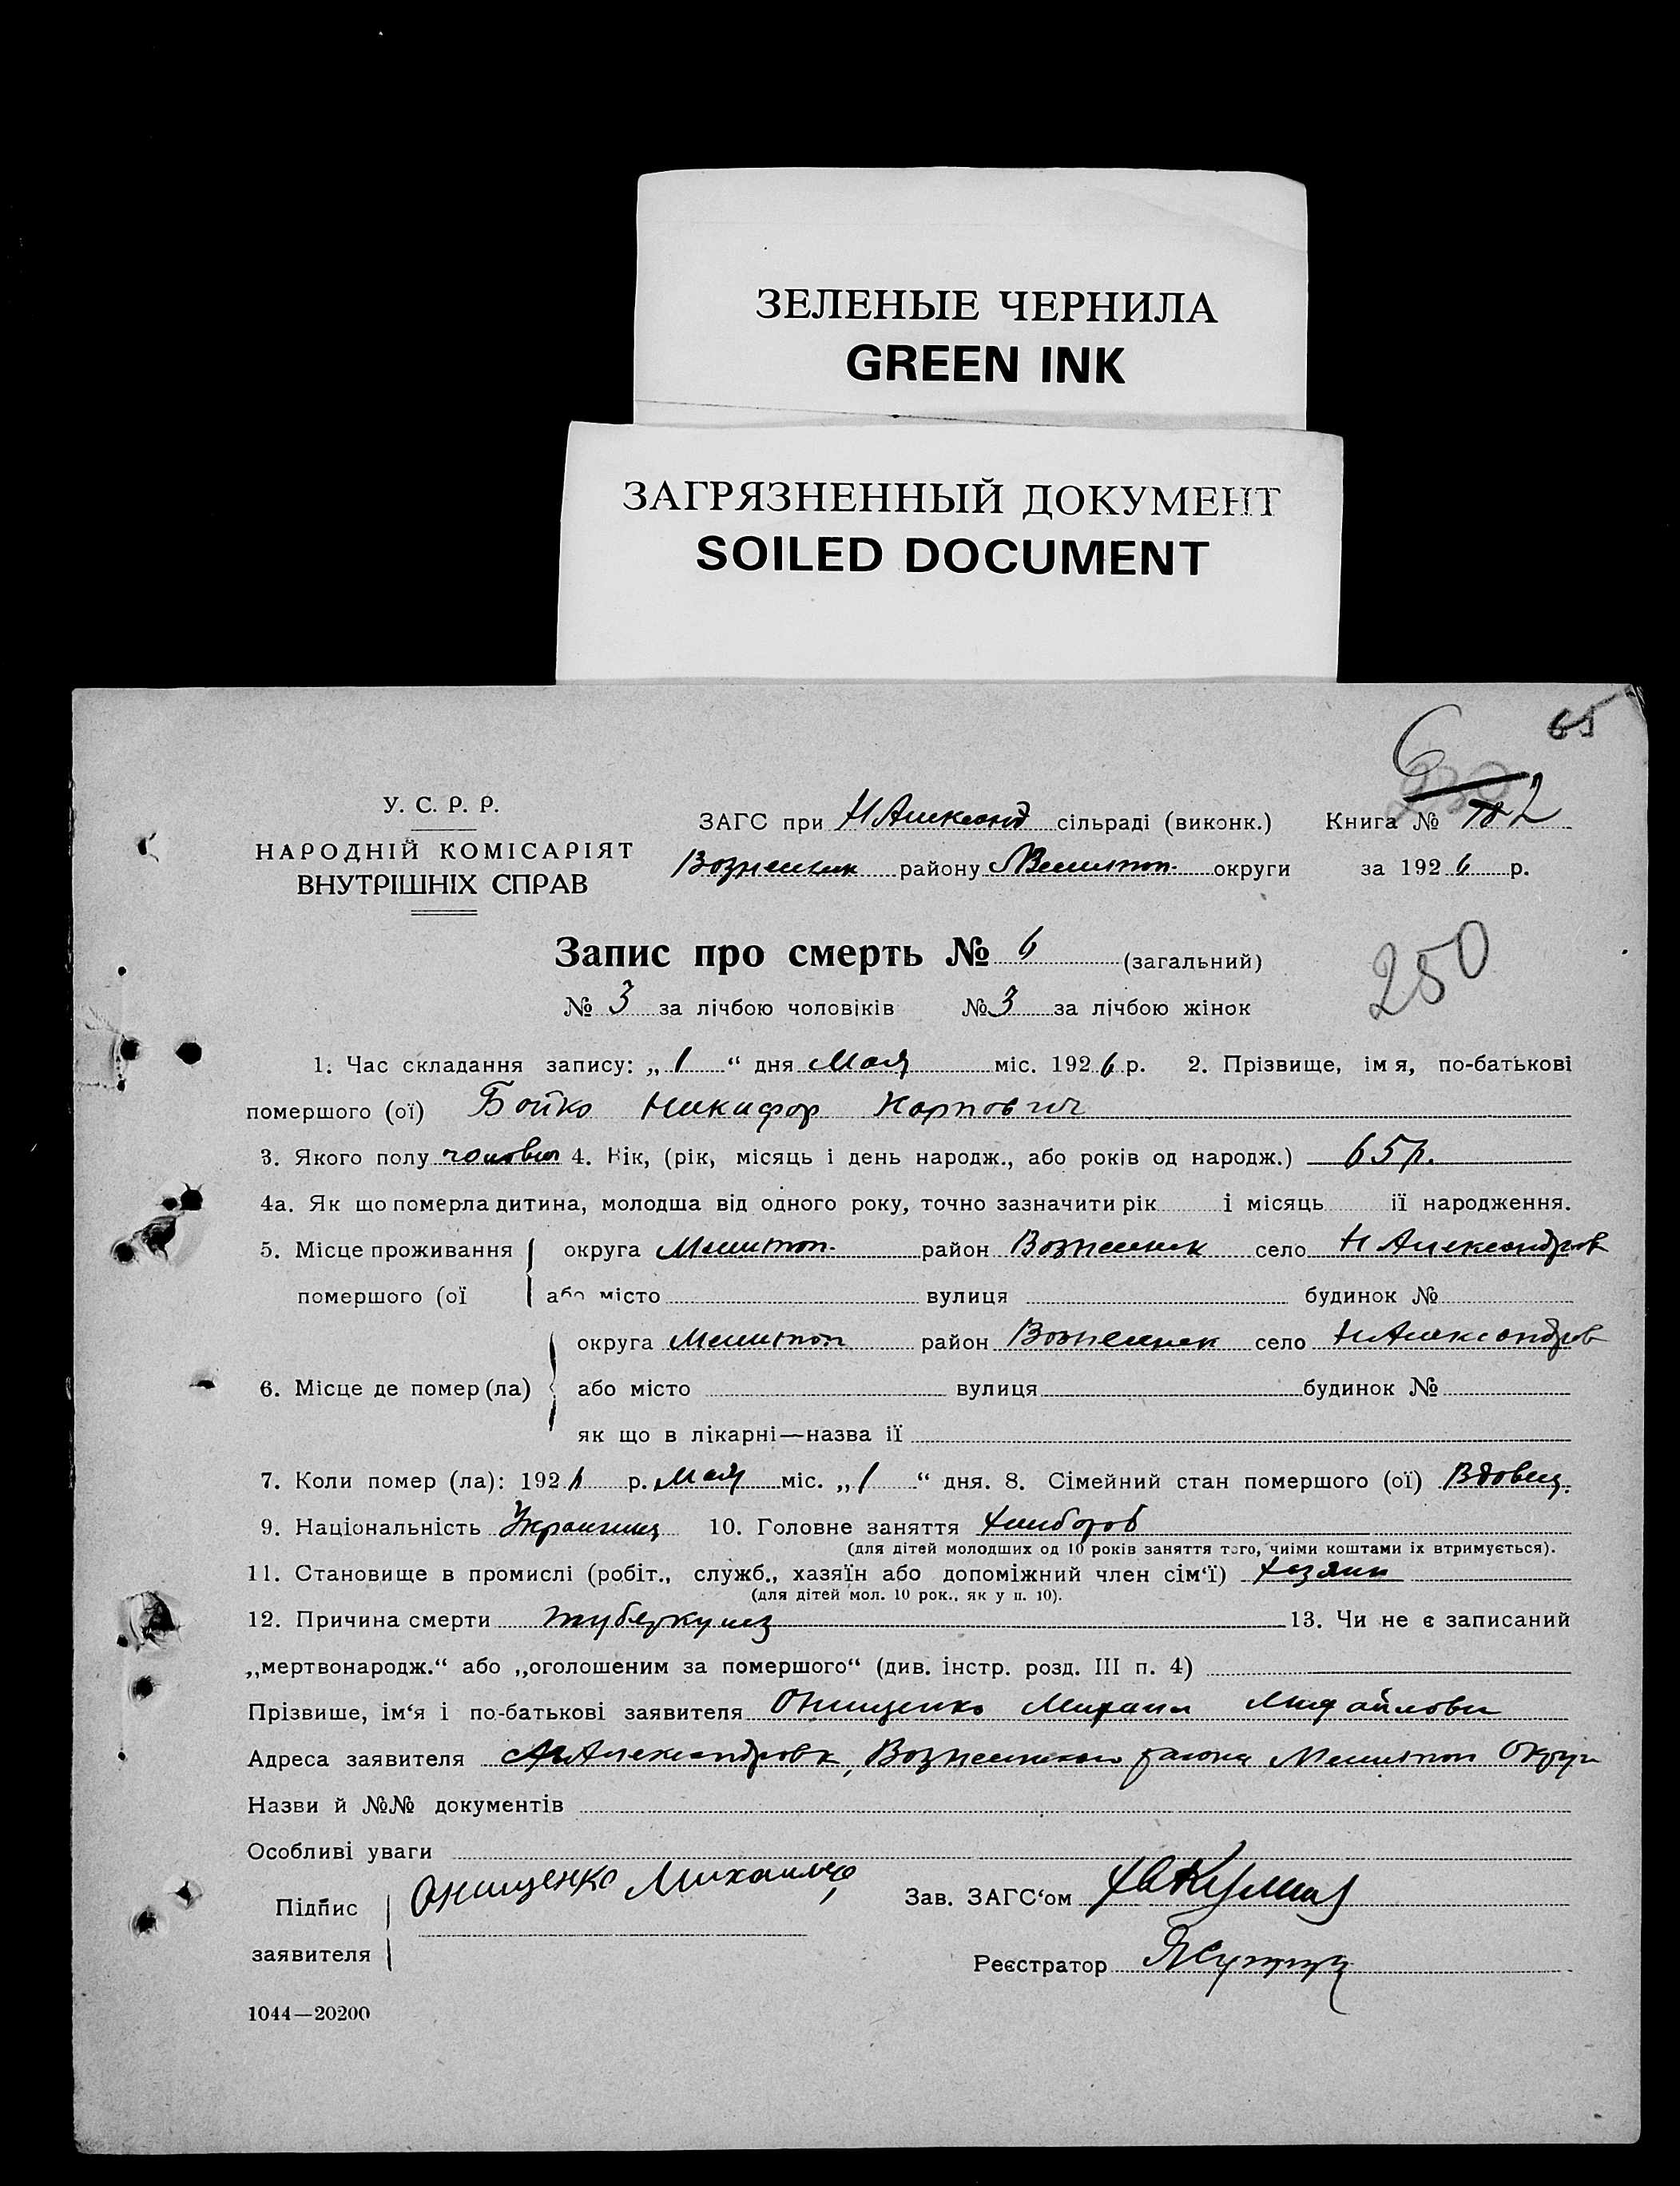 ЗЕЛЕНЫЕ ЧЕРНИЛА
GREEN INK
ЗАГРЯЗНЕННЫЙ ДОКУМЕНТ
SOILED DOCUMENT
65
6
У. С. Р. Р.
НАРОДНІЙ КОМІСАРІЯТ
ВНУТРІШНІХ СПРАВ
ЗАГС при Н Александ сільраді (виконк.) Книга № 2
Вознесенк району Мелитоп. округи за 1926 р.
Запис про смерть № 6 (загальний)
250
№ 3 за лічбою чоловіків № 3 за лічбою жінок
1. Час складання запису: „1“ дня Мая міс. 1926 р. 2. Прізвище, імя, по-батькові
помершого (ої) Бойко Никифор Карпович
3. Якого полу 4. Вік, (рік, місяць і день народж., або років од народж.) 65 р.
4а. Як що померла дитина, молодша від одного року, точно зазначити рік і місяць ії народження.
5. Місце проживання округа Мелитоп. район Вознесенк село Н Александров
помершого (ої або місто вулиця будинок №
округа Мелитоп район Вознесенк село Н Александров
6. Місце де помер (ла) або місто вулиця будинок №
як що в лікарні—назва ії
7. Коли помер (ла): 1926 р. Мая міс. „1“ дня. 8. Сімейний стан помершого (ої) Вдовец.
9. Національність Украинец 10. Головне заняття хлебороб
(для дітей молодших од 10 років заняття того, чиіми коштами іх втримується).
11. Становище в промислі (робіт., служб., хазяїн або допоміжний член сім‘ї) хозяин
(для дітей мол. 10 рок., як у п. 10).
12. Причина смерти туберкулез 13. Чи не є записаний
„мертвонародж.“ або „оголошеним за помершого“ (див. інстр. розд. III п. 4)
Прізвише, ім‘я і по-батькові заявителя Онищенко Михаил Михайлович
Адреса заявителя Александровк, Вознесенкого района Мелитоп Округи
Назви й №№ документів
Особливі уваги
Підпис Онищенко Зав. ЗАГС‘ом
заявителя Реєстратор
1044—20200